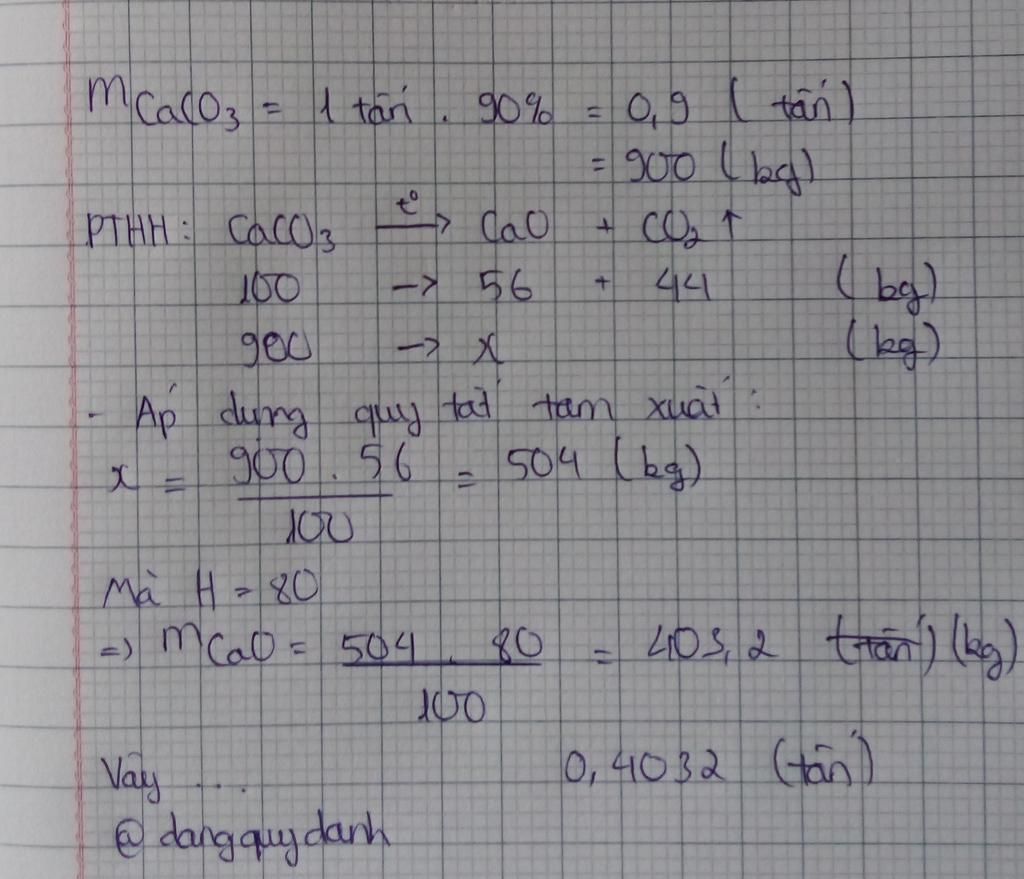 mCaCO₃ = 1 tấn . 90% = 0,9 ( tấn )
= 900 ( kg )
PTHH: CaCO₃ —t°→ CaO + CO₂ ↑
100 → 56 + 44 ( kg )
900 → x ( kg )
- Áp dụng quy tắt tam xuất :
x = 900 . 56 / 100 = 504 ( kg )
Mà H = 80
=> mCaO = 504 . 80 / 100 = 403,2 (tấn) (kg)
Vậy .... 0,4032 (tấn)
@dangquydanh